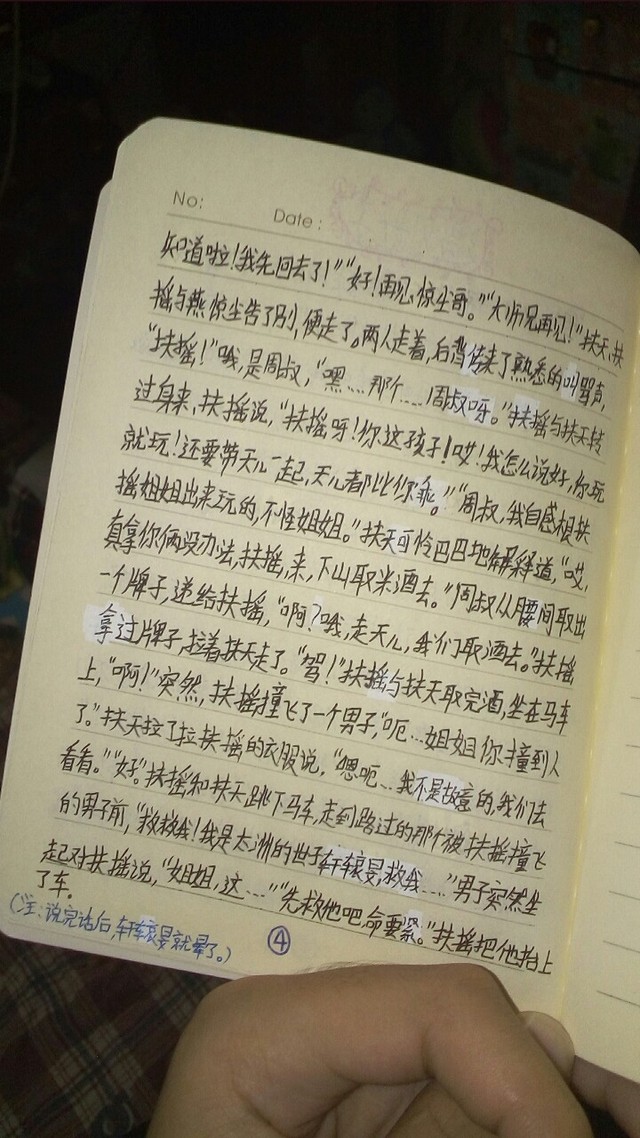 No:
Date:
知道啦！我先回去了！”“好！再见，惊尘哥。”“大师兄再见！”扶天、扶
摇与燕惊尘告了别，便走了。两人走着，后背传来了熟悉的叫骂声，
“扶摇！”哦，是周叔，“嘿……那个……周叔呀。”扶摇与扶天转
过身来，扶摇说，“扶摇呀！你这孩子！哎！我怎么说好，你玩
就玩！还要带天儿一起，天儿都比你乖。”“周叔，我自愿跟扶
摇姐姐出来玩的，不怪姐姐。”扶天可怜巴巴地解释道，“哎，
真拿你俩没办法，扶摇，来，下山取米酒去。”周叔从腰间取出
一个牌子，递给扶摇，“啊？哦，走天儿，我们取酒去。”扶摇
拿过牌子，拉着扶天走了。“驾！”扶摇与扶天取完酒，坐在马车
上，“啊！”突然，扶摇撞飞了一个男子，“呃…姐姐你撞到人
了。”扶天拉了拉扶摇的衣服说，“嗯呃…我不是故意的，我们去
看看。”“好。”扶摇和扶天跳下马车，走到路过的那个被扶摇撞飞
的男子前，“救救我！我是太渊的世子轩辕旻，救我……”男子突然坐
起对扶摇说，“姐姐，这……”“先救他吧，命要紧。”扶摇把他抬上
了车。
（注：说完话后，轩辕旻就晕了。）
④